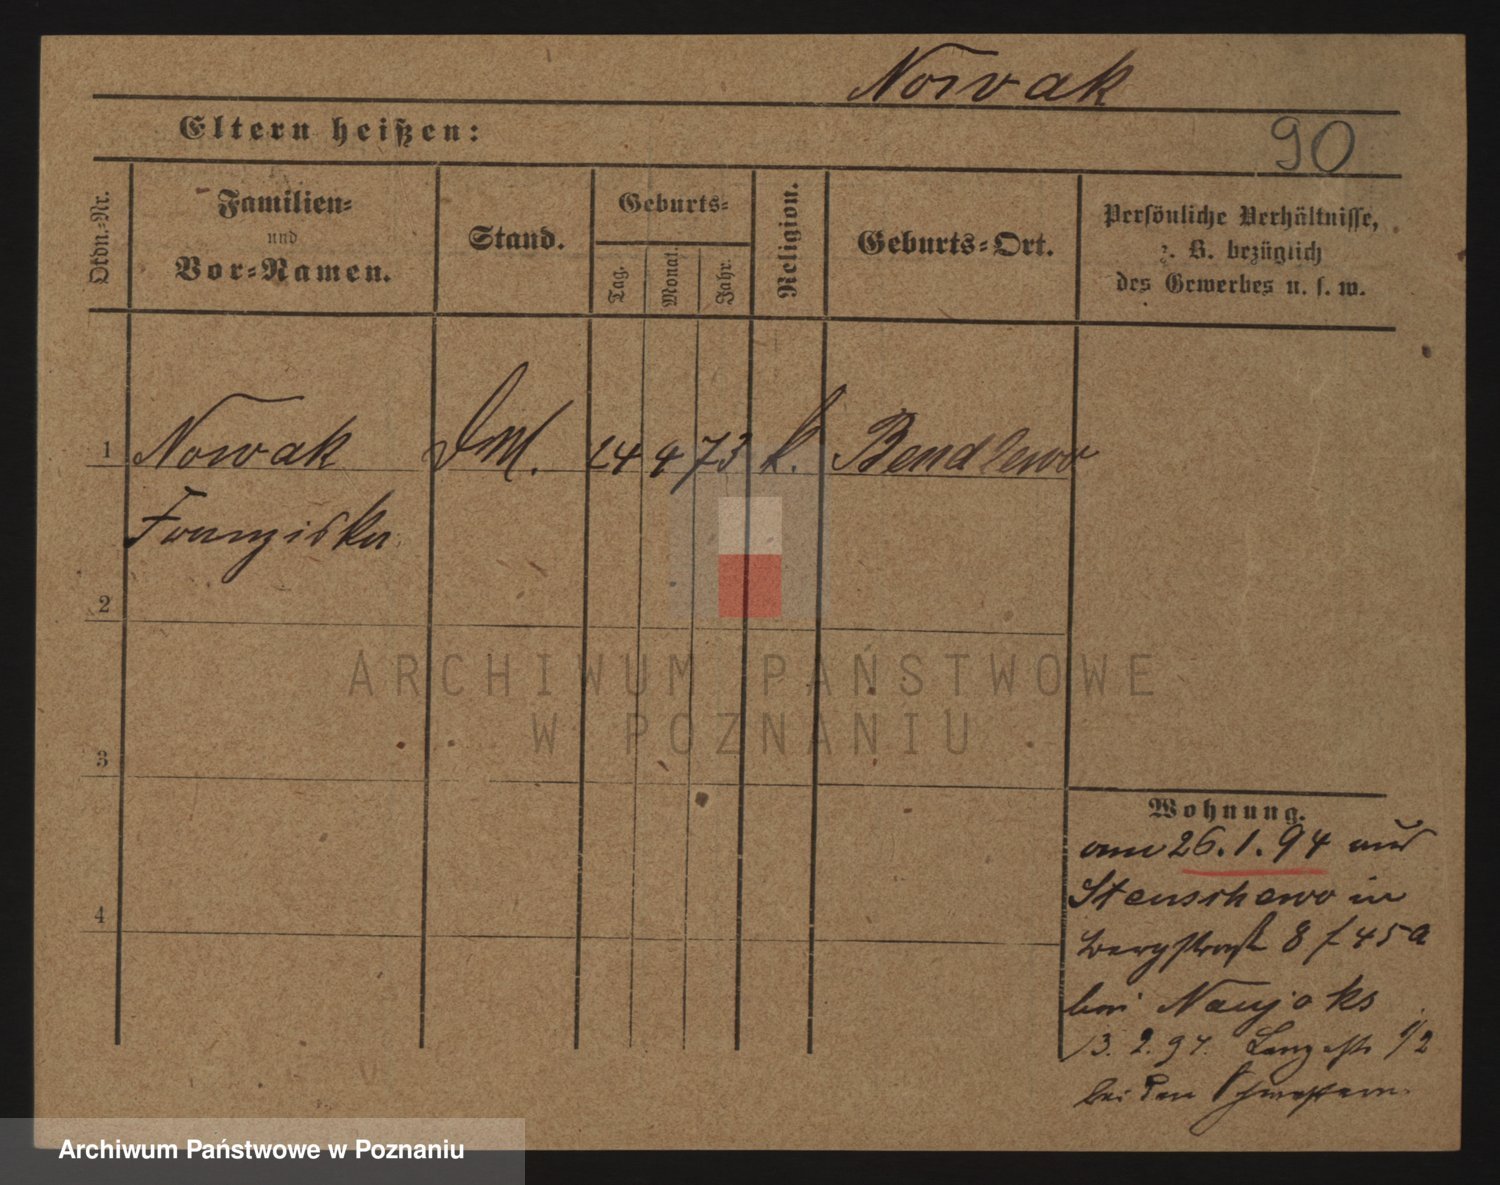 Nowak
Eltern heißen:
90
Ordn.-Nr.
Familien-
und
Vor-Namen.
Stand.
Geburts-
Tag.
Monat.
Jahr.
Religion.
Geburts-Ort.
Persönliche Verhältnisse,
z. B. bezüglich
des Gewerbes u. s. w.
1 Nowak DM. 24 4 73 k. Bendlewo
Franziska
2
ARCHIWUM PAŃSTWOWE
W POZNANIU
3
4
Wohnung.
am 26.1.94 aus
Stenschewo in
Bergstraße 8 f 45a
bei Naujoks
13. 2. 97. Lange str. 1/2
bei den Schwestern.
Archiwum Państwowe w Poznaniu